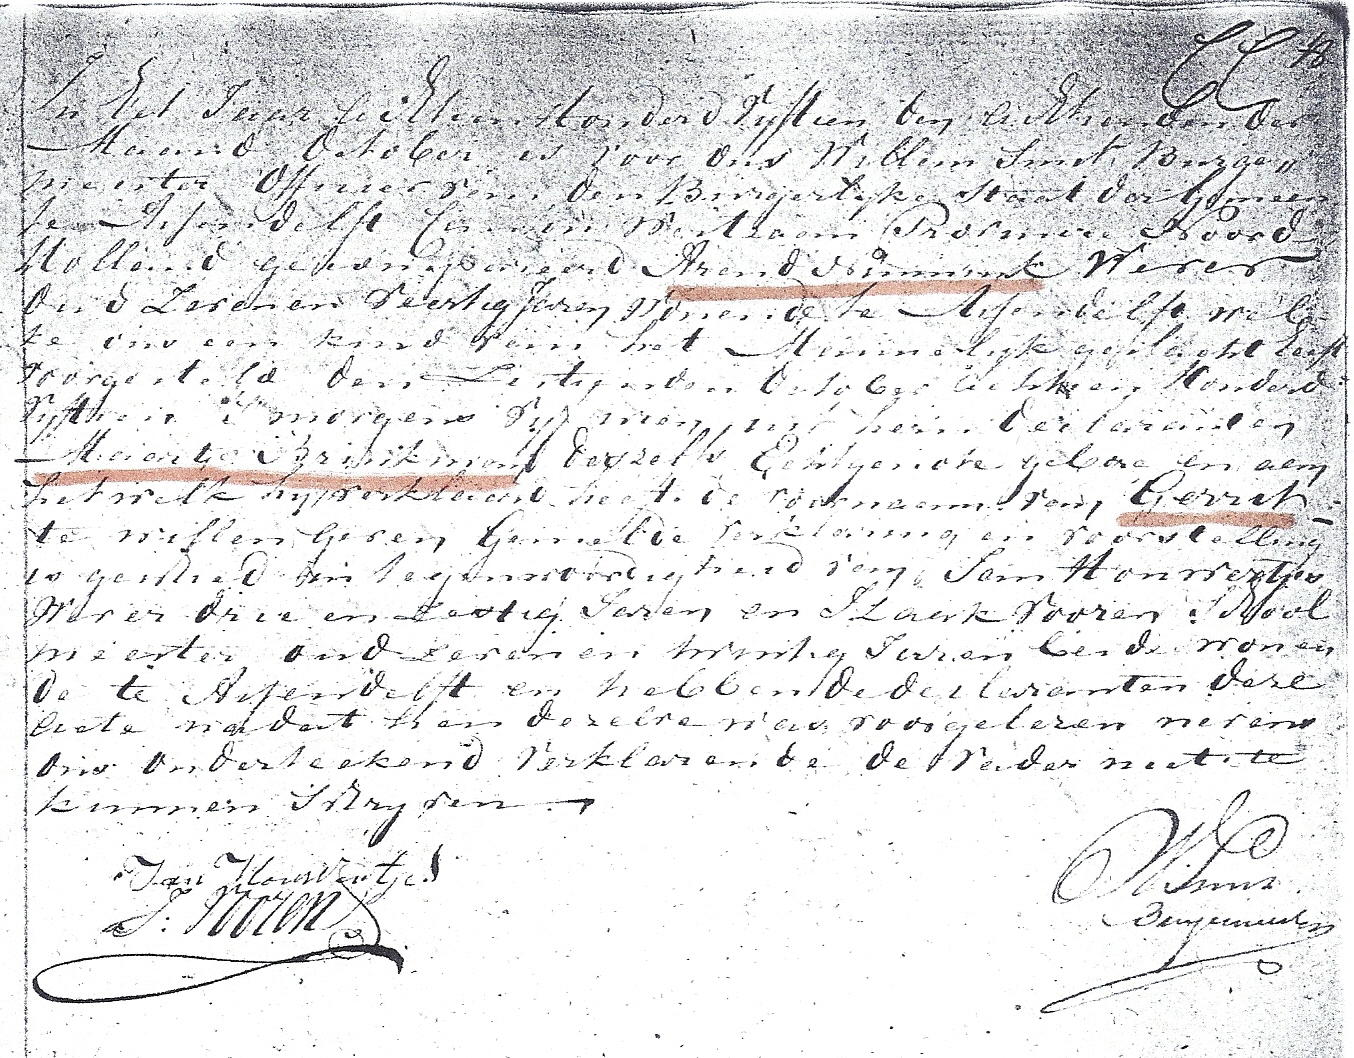 In Het Jaar Achttien Honderd Vyftien den Achttienden der
Maand October is voor ons Willem Smit Burge„
meester Officier van den Burgerlyke Staat der Gemeen
te Assendelft Canton Westzaan Provincie Noord
Holland gecompareerd Arend Wever
Oud Zeven en Veertig Jaren Wonende te Assendelft wel
ke ons een kind van het Mannelyk geslacht heeft
voorgesteld den Zestienden October Achttien Honderd
Vyftien s morgens Vyf uren uit hem Declarant en
Maartje Brinkman deszelfs Echtgenote gebore en aan
hetwelk hy verklaard heeft de voornaam van Gerrit
te willen Geven Gemelde verklaring en voorstelling
is geschied in tegenwoordigheid van Jan Houwertjes
Wever drie en zestig Jaren en Izaak Vooren School
meester oud zeven en twintig Jaren beide wonen
de te Assendelft en hebben de declaranten deze
Acte nadat hen dezelve was voorgelezen nevens
ons onderteekend Verklarende de Vader niet te
kunnen Schryven
Jan Houwertjes
J. Vooren
W. Smit
Burgemeester